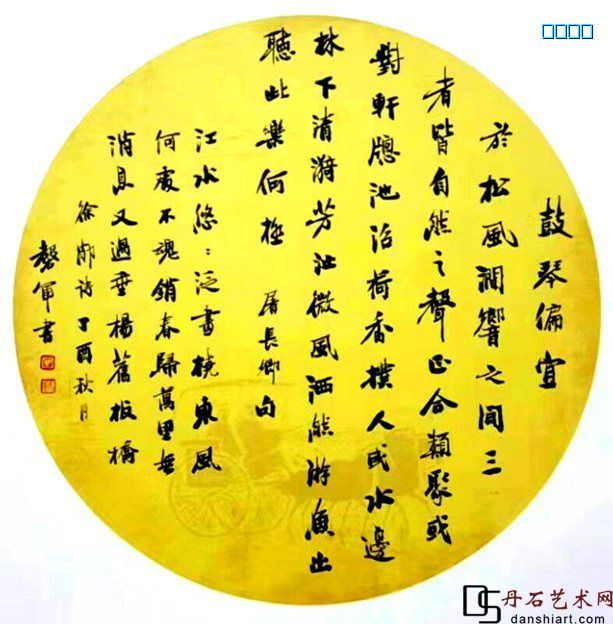 鼓琴偏宜
於松風澗響之间三
者皆自然之聲正合類聚或
對軒牕池沼荷香撲人或水邊
林下清漪芳沚微風洒然游魚出
聽此樂何極 屠長卿句
江水悠〻泛畫橈東風
何處不魂銷春歸萬里無
消息又過垂楊舊板橋
徐 诗 丁酉秋月
磬軍書
丹石艺术网
danshiart.com